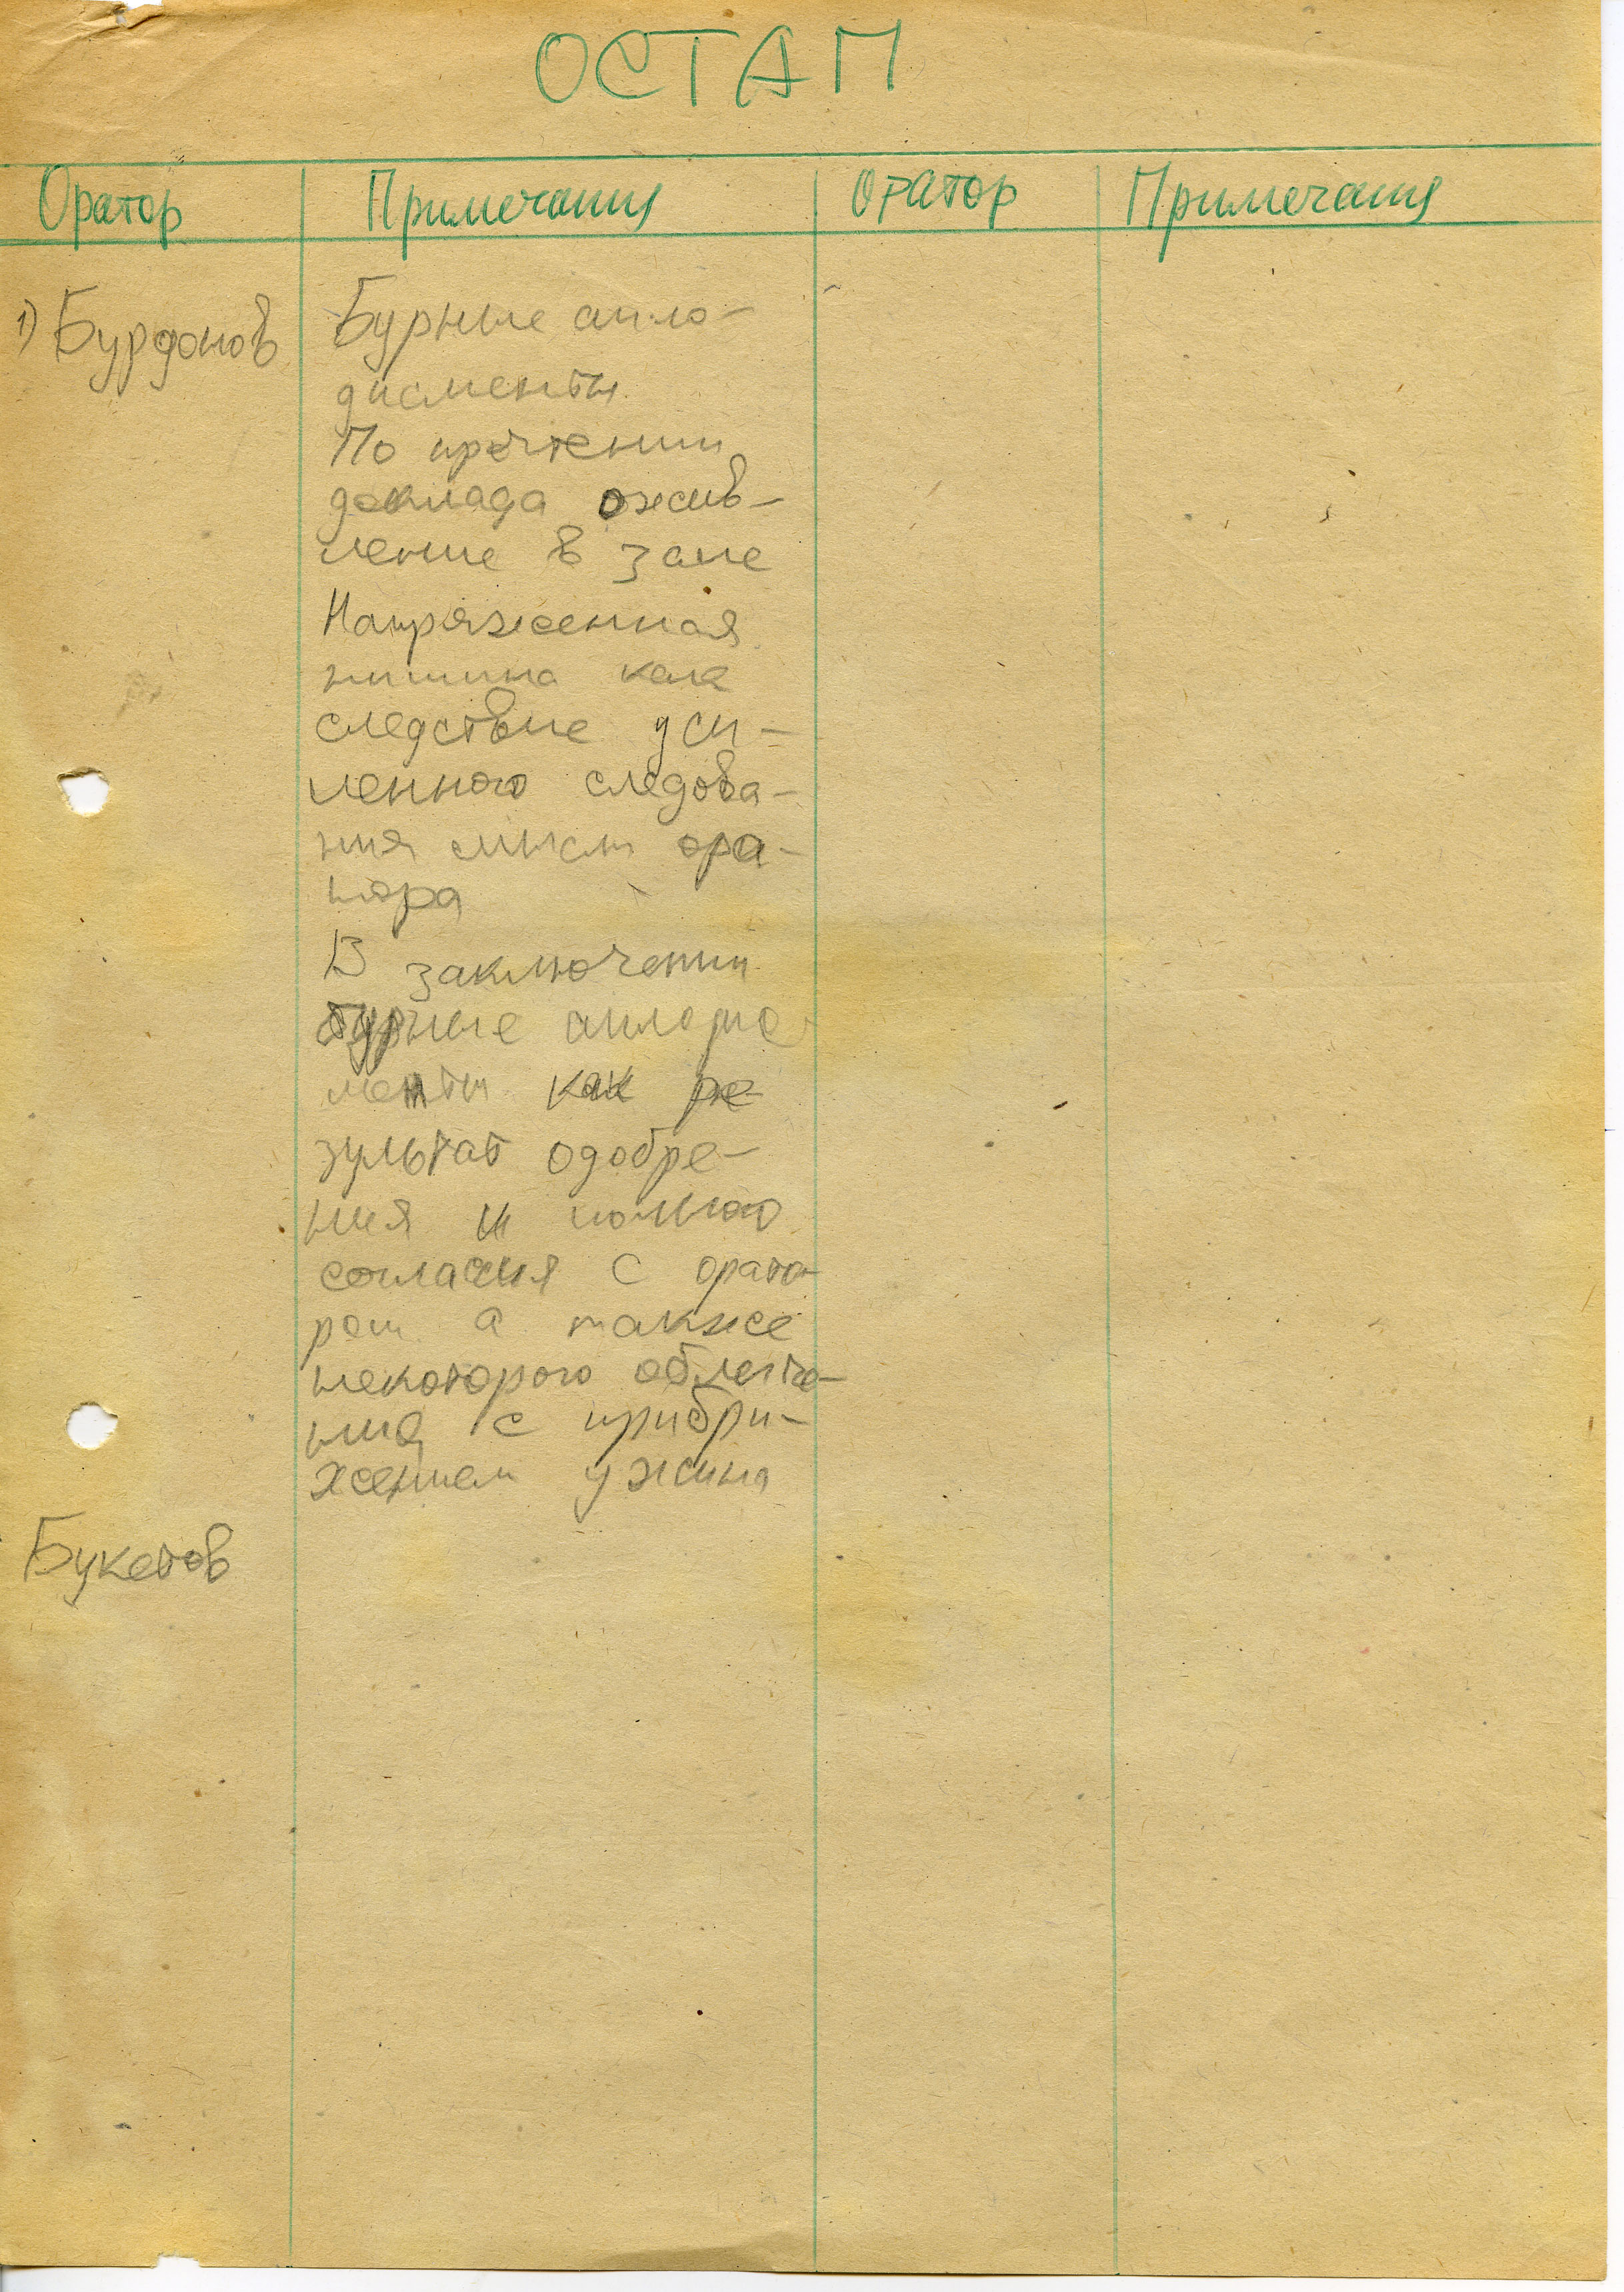 ОСТАП
Оратор Примечания Оратор Примечания
1) Бурдонов Бурные апло-
дисменты.
По прочтении
доклада ожив-
ление в зале
Напряженная
тишина как
следствие уси-
ленного следова-
ния мысли ора-
тора
В заключении
бурные аплодис
менты как ре-
зультат одобре-
ния и полного
согласия с орато-
ром а также
некоторого облегче-
ния с прибли-
жением ужина
Букетов